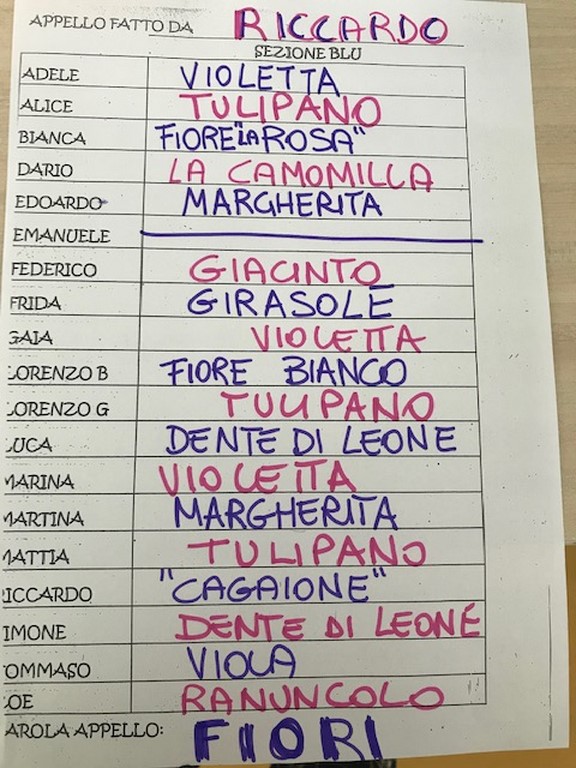 APPELLO FATTO DA RICCARDO
SEZIONE BLU
ADELE VIOLETTA
ALICE TULIPANO
BIANCA FIORE "LA ROSA"
DARIO LA CAMOMILLA
EDOARDO MARGHERITA
EMANUELE
FEDERICO GIACINTO
FRIDA GIRASOLE
GAIA VIOLETTA
LORENZO B FIORE BIANCO
LORENZO G TULIPANO
LUCA DENTE DI LEONE
MARINA VIOLETTA
MARTINA MARGHERITA
MATTIA TULIPANO
RICCARDO "CAGAIONE"
IMONE DENTE DI LEONE
OMMASO VIOLA
OE RANUNCOLO
AROLA APPELLO: FIORI